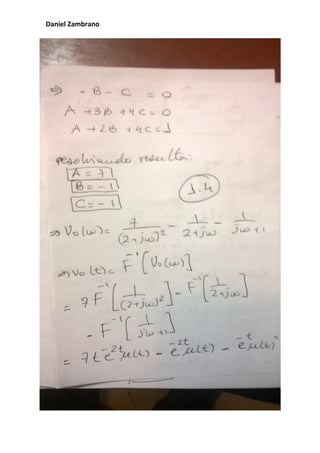 Daniel Zambrano
⇒ - B - C = 0
A + 3B + 4C = 0
A + 2B + 4C = 1
resolviendo resulta:
A = 7
B = -1
C = -1
1.4
⇒ Vo(ω) = 7/(2+jω)² - 1/(2+jω) - 1/(jω+1)
⇒ Vo(t) = F⁻¹[Vo(ω)]
= 7F⁻¹[1/(2+jω)²] - F⁻¹[1/(2+jω)]
- F⁻¹[1/(jω+1)]
= 7te⁻²ᵗμ(t) - e⁻²ᵗμ(t) - e⁻ᵗμ(t)